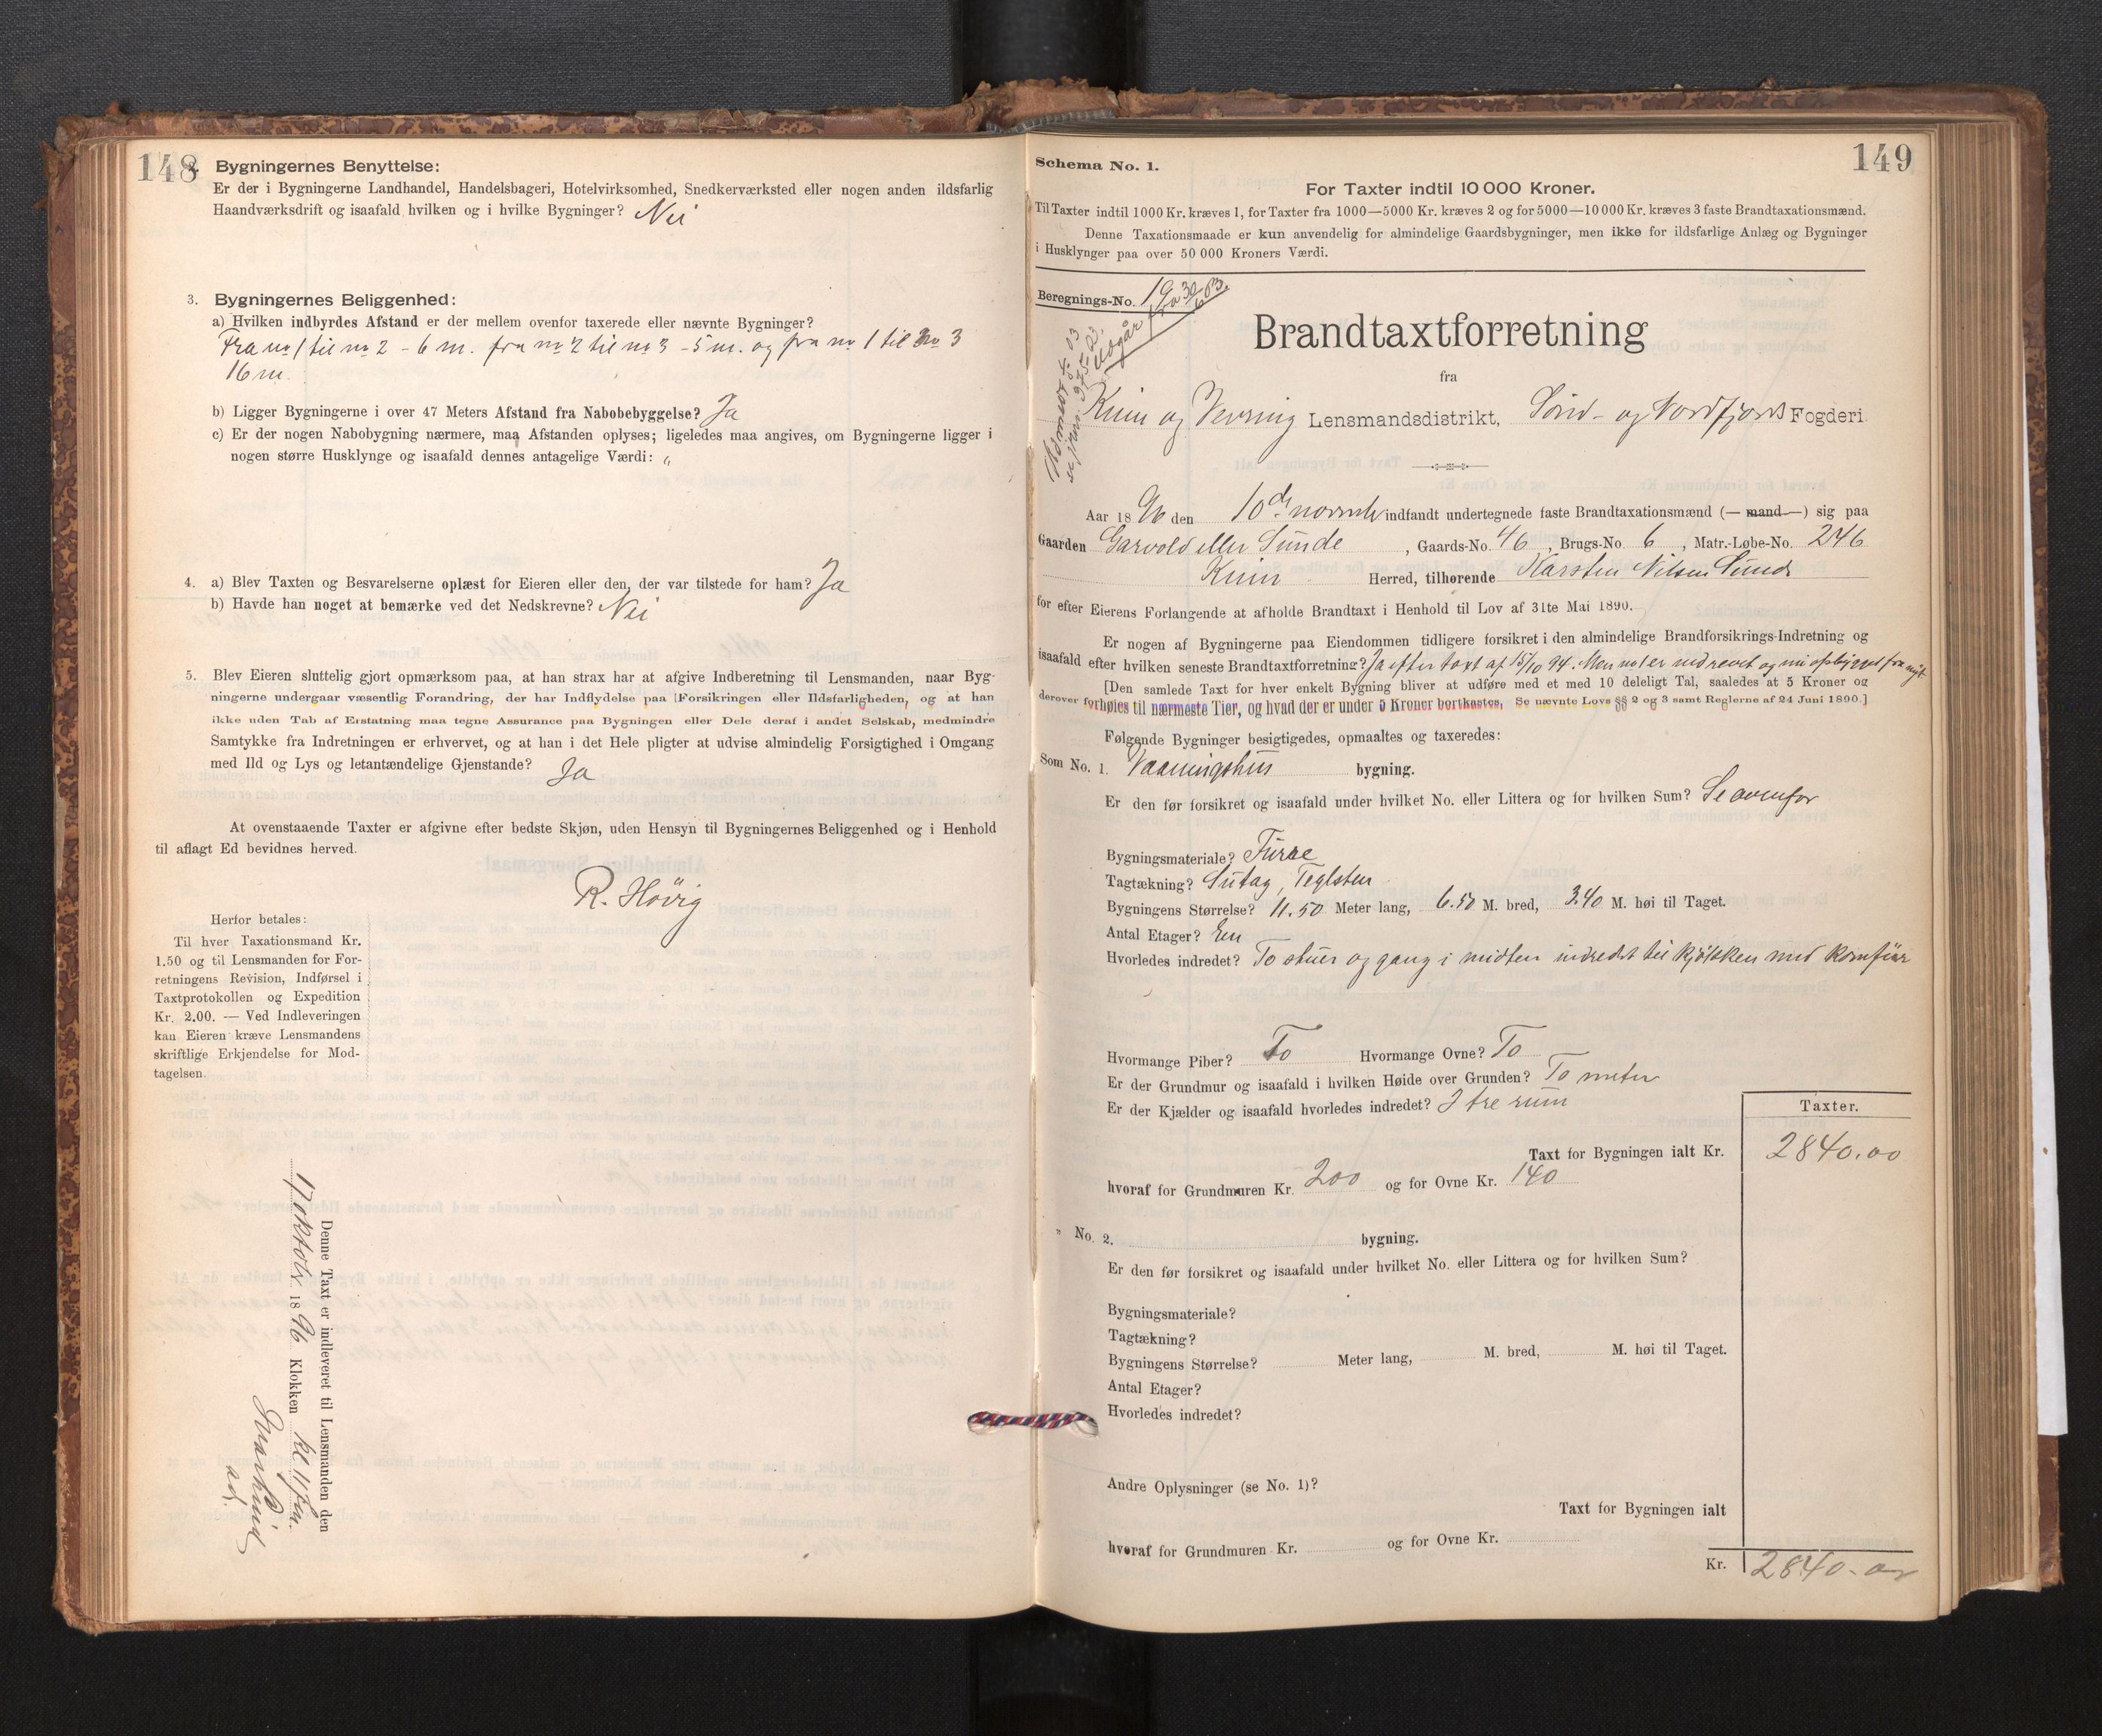 148
Bygningernes Benyttelse:
Er der i Bygningerne Landhandel, Handelsbageri, Hotelvirksomhed, Snedkerværksted eller nogen anden ildsfarlig
Haandværksdrift og isaafald hvilken og i hvilke Bygninger? Nei
3. Bygningernes Beliggenhed:
a) Hvilken indbyrdes Afstand er der mellem ovenfor taxerede eller nævnte Bygninger?
Fra no 1 til no 2 - 6 m. fra no 2 til no 3 - 5 m. og fra no 1 til no 3
16 m.
b) Ligger Bygningerne i over 47 Meters Afstand fra Nabobebyggelse? Ja
c) Er der nogen Nabobygning nærmere, maa Afstanden oplyses; ligeledes maa angives, om Bygningerne ligger i
nogen større Husklynge og isaafald dennes antagelige Værdi: „
4. a) Blev Taxten og Besvarelserne oplæst for Eieren eller den, der var tilstede for ham? Ja
b) Havde han noget at bemærke ved det Nedskrevne? Nei
5. Blev Eieren sluttelig gjort opmærksom paa, at han strax har at afgive Indberetning til Lensmanden, naar Byg-
ningerne undergaar væsentlig Forandring, der har Indflydelse paa Forsikringen eller Ildsfarligheden, og at han
ikke uden Tab af Erstatning maa tegne Assurance paa Bygningen eller Dele deraf i andet Selskab, medmindre
Samtykke fra Indretningen er erhvervet, og at han i det Hele pligter at udvise almindelig Forsigtighed i Omgang
med Ild og Lys og letantændelige Gjenstande? Ja
At ovenstaaende Taxter er afgivne efter bedste Skjøn, uden Hensyn til Bygningernes Beliggenhed og i Henhold
til aflagt Ed bevidnes herved.
R. Hövig
Herfor betales:
Til hver Taxationsmand Kr.
1.50 og til Lensmanden for For-
retningens Revision, Indførsel i
Taxtprotokollen og Expedition
Kr. 2.00. — Ved Indleveringen
kan Eieren kræve Lensmandens
skriftlige Erkjendelse for Mod-
tagelsen.
Denne Taxt er indleveret til Lensmanden den
17 oktobr 1896 Klokken kl 11 fm.
149
Schema No. 1.
For Taxter indtil 10 000 Kroner.
Til Taxter indtil 1000 Kr. kræves 1, for Taxter fra 1000—5000 Kr. kræves 2 og for 5000—10 000 Kr. kræves 3 faste Brandtaxationsmænd.
Denne Taxationsmaade er kun anvendelig for almindelige Gaardsbygninger, men ikke for ildsfarlige Anlæg og Bygninger
i Husklynger paa over 50 000 Kroners Værdi.
Beregnings-No. 19
Udgår fra 30/6 03.
Brandtaxtforretning
fra
Kinn og Vevring Lensmandsdistrikt, Sønd- og Nordfjords Fogderi.
Aar 1896 den 10de novemb indfandt undertegnede faste Brandtaxationsmænd (— mand —) sig paa
Gaarden Garvold eller Sunde, Gaards-No. 46, Brugs-No. 6, Matr.-Løbe-No. 246
Kinn Herred, tilhørende Karsten Nilsen Sunde
for efter Eierens Forlangende at afholde Brandtaxt i Henhold til Lov af 31te Mai 1890.
Er nogen af Bygningerne paa Eiendommen tidligere forsikret i den almindelige Brandforsikrings-Indretning og
isaafald efter hvilken seneste Brandtaxtforretning? Ja efter taxt af 15/10 94. Men no 1 er nedrevet og ny opbygget fra nyt
[Den samlede Taxt for hver enkelt Bygning bliver at udføre med et med 10 deleligt Tal, saaledes at 5 Kroner og
derover forhøies til nærmeste Tier, og hvad der er under 5 Kroner bortkastes. Se nævnte Lovs §§ 2 og 3 samt Reglerne af 24 Juni 1890.]
Følgende Bygninger besigtigedes, opmaaltes og taxeredes:
Som No. 1. Vaaningshus bygning.
Er den før forsikret og isaafald under hvilket No. eller Littera og for hvilken Sum? Se ovenfor
Bygningsmateriale? Furue
Tagtækning? Sutag, Teglsten
Bygningens Størrelse? 11.50 Meter lang, 6.50 M. bred, 3.40 M. høi til Taget.
Antal Etager? En
Hvorledes indredet? To stuer og gang i midten indredet til kjøkken med komfur
Hvormange Piber? To Hvormange Ovne? To
Er der Grundmur og isaafald i hvilken Høide over Grunden? To meter
Er der Kjælder og isaafald hvorledes indredet? I tre rum
Taxter.
Taxt for Bygningen ialt Kr. 2840.00
hvoraf for Grundmuren Kr. 200 og for Ovne Kr. 140
" No. 2. bygning.
Er den før forsikret og isaafald under hvilket No. eller Littera og for hvilken Sum?
Bygningsmateriale?
Tagtækning?
Bygningens Størrelse? Meter lang, M. bred, M. høi til Taget.
Antal Etager?
Hvorledes indredet?
Andre Oplysninger (se No. 1)?
Taxt for Bygningen ialt
hvoraf for Grundmuren Kr. og for Ovne Kr.
Kr. 2840.00